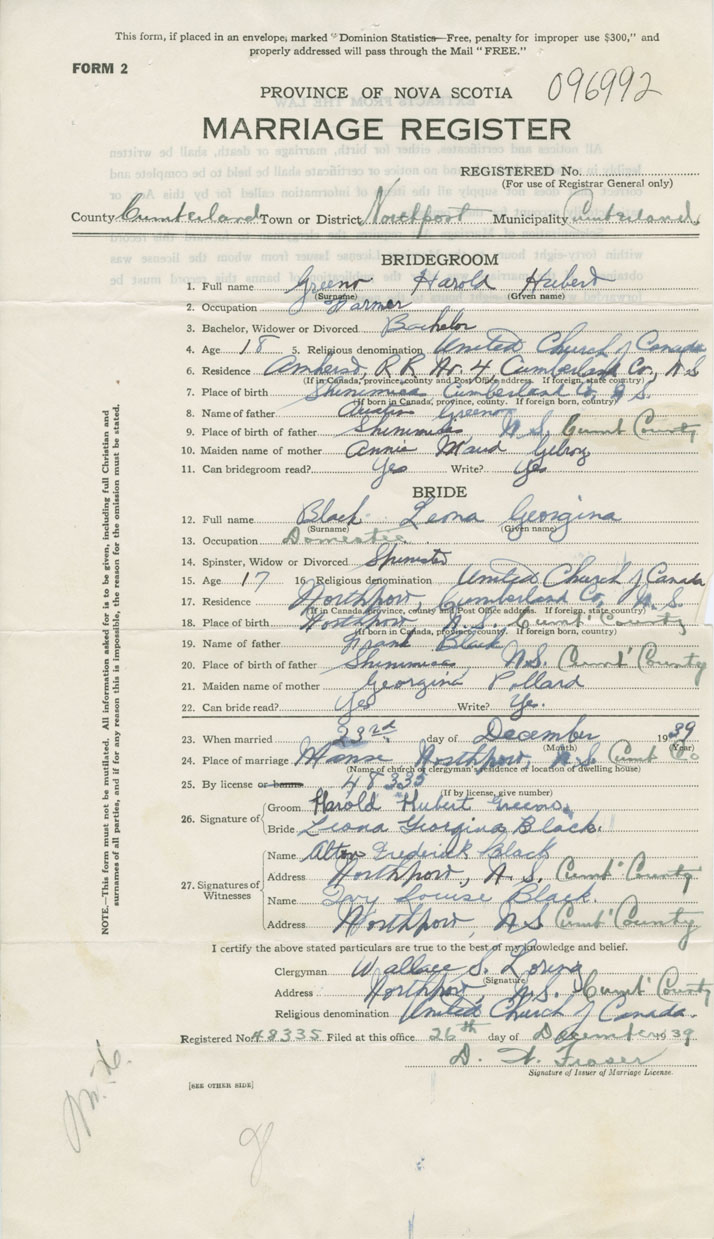 This form, if placed in an envelope, marked "Dominion Statistics—Free, penalty for improper use $300," and
properly addressed will pass through the Mail "FREE."
FORM 2
PROVINCE OF NOVA SCOTIA 096992
MARRIAGE REGISTER
REGISTERED No.
(For use of Registrar General only)
County Cumberland Town or District Northport Municipality Cumberland
BRIDEGROOM
1. Full name Greeno Harold Hubert
(Surname) (Given name)
2. Occupation Farmer
3. Bachelor, Widower or Divorced Bachelor
4. Age 18 5. Religious denomination United Church of Canada
6. Residence Amherst, R R No. 4, Cumberland Co., N S
(If in Canada, province, county and Post Office address. If foreign, state country)
7. Place of birth Shinimicas Cumberland Co, N S.
(If born in Canada, province, county. If foreign born, country)
8. Name of father Greeno
9. Place of birth of father Shinimicas N.S. Cumb County
10. Maiden name of mother Annie Maud Gilroy
11. Can bridegroom read? Yes Write? Yes
BRIDE
12. Full name Black Leona Georgina
(Surname) (Given name)
13. Occupation Domestic
14. Spinster, Widow or Divorced Spinster
15. Age 17 16. Religious denomination United Church of Canada
17. Residence Northport, Cumberland Co, N. S.
(If in Canada, province, county and Post Office address. If foreign, state country)
18. Place of birth Northport N.S. Cumb' County
(If born in Canada, province, county. If foreign born, country)
19. Name of father Frank Black
20. Place of birth of father Shinimicas N.S. Cumb' County
21. Maiden name of mother Georgina Pollard
22. Can bride read? Yes Write? Yes.
23. When married 23rd day of December 1939
(Month) (Year)
24. Place of marriage Manse Northport, N.S. Cumb Co
(Name of church or clergyman's residence or location of dwelling house)
25. By license or banns 48335
(If by license, give number)
26. Signature of
Groom Harold Hubert Greeno.
Bride Leona Georgina Black.
27. Signatures of Witnesses
Name Alton Frederick Black
Address Northport, N.S. Cumb' County
Name Ivy Louise Black.
Address Northport, N S Cumb' County
I certify the above stated particulars are true to the best of my knowledge and belief.
Clergyman Wallace S.
(Signature)
Address Northport, N.S. Cumb' County
Religious denomination United Church of Canada.
Registered No. 48335 Filed at this office 26th day of December 1939
D. Fraser
Signature of Issuer of Marriage License.
[SEE OTHER SIDE]
NOTE.—This form must not be mutilated. All information asked for is to be given, including full Christian and
surnames of all parties, and if for any reason this is impossible, the reason for the omission must be stated.